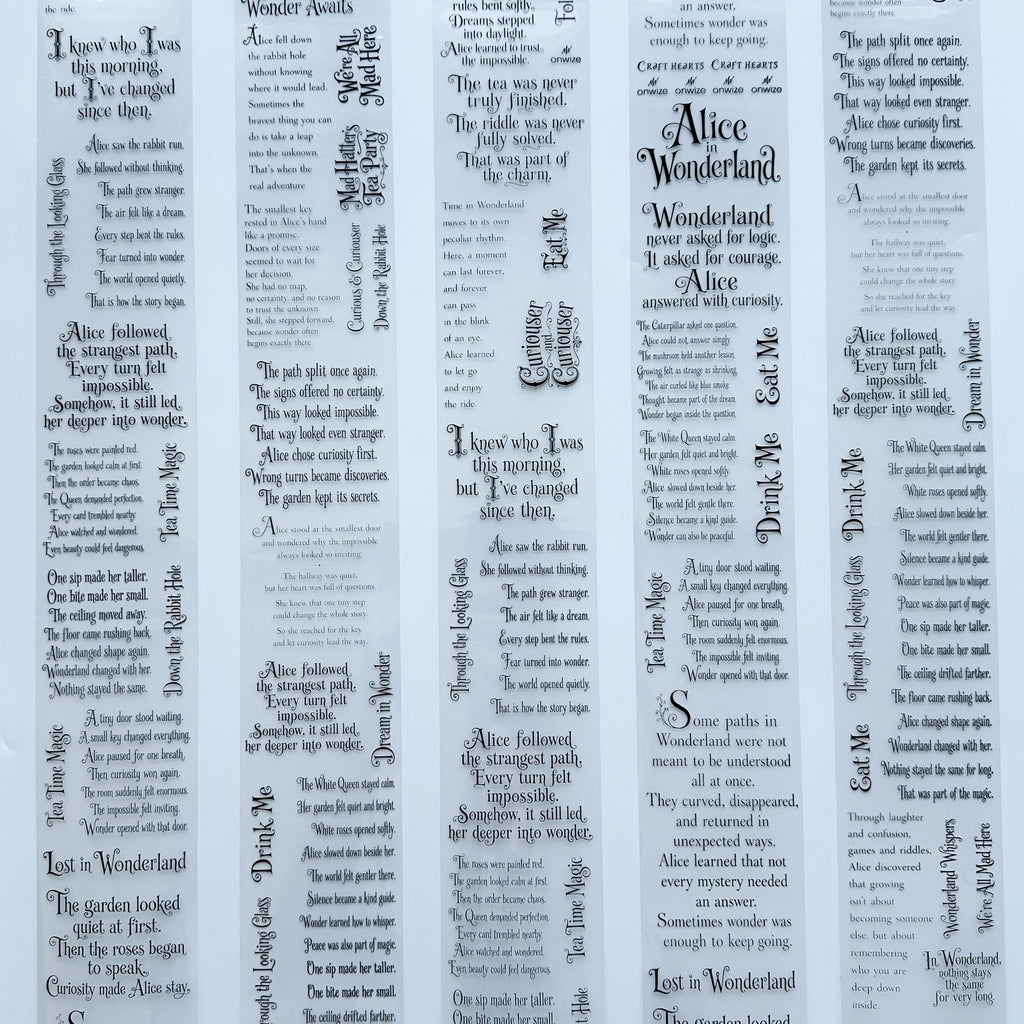 the ride.
I knew who I was
this morning,
but I've changed
since then.
Through the Looking Glass
Alice saw the rabbit run.
She followed without thinking.
The path grew stranger.
The air felt like a dream.
Every step bent the rules.
Fear turned into wonder.
The world opened quietly.
That is how the story began.
Alice followed
the strangest path.
Every turn felt
impossible.
Somehow, it still led
her deeper into wonder.
The roses were painted red.
The garden looked calm at first.
Then the order became chaos.
The Queen demanded perfection.
Every card trembled nearby.
Alice watched and wondered.
Even beauty could feel dangerous.
Tea Time Magic
One sip made her taller.
One bite made her small.
The ceiling moved away.
The floor came rushing back.
Alice changed shape again.
Wonderland changed with her.
Nothing stayed the same.
Down the Rabbit Hole
Tea Time Magic
A tiny door stood waiting.
A small key changed everything.
Alice paused for one breath.
Then curiosity won again.
The room suddenly felt enormous.
The impossible felt inviting.
Wonder opened with that door.
Lost in Wonderland
The garden looked
quiet at first.
Then the roses began
to speak.
Curiosity made Alice stay.
S
Wonder Awaits
Alice fell down
the rabbit hole
without knowing
where it would lead.
Sometimes the
bravest thing you can
do is take a leap
into the unknown.
That's when the
real adventure
We're All
Mad Here
Mad Hatter's
Tea Party
The smallest key
rested in Alice's hand
like a promise.
Doors of every size
seemed to wait for
her decision.
She had no map,
no certainty, and no reason
to trust the unknown.
Still, she stepped forward,
because wonder often
begins exactly there.
Curious & Curiouser
Down the Rabbit Hole
The path split once again.
The signs offered no certainty.
This way looked impossible.
That way looked even stranger.
Alice chose curiosity first.
Wrong turns became discoveries.
The garden kept its secrets.
Alice stood at the smallest door
and wondered why the impossible
always looked so inviting.
The hallway was quiet,
but her heart was full of questions.
She knew that one tiny step
could change the whole story.
So she reached for the key
and let curiosity lead the way.
Alice followed
the strangest path.
Every turn felt
impossible.
Somehow, it still led
her deeper into wonder.
Dream in Wonder
Drink Me
The White Queen stayed calm.
Her garden felt quiet and bright.
White roses opened softly.
Alice slowed down beside her.
The world felt gentler there.
Silence became a kind guide.
Wonder learned how to whisper.
Peace was also part of magic.
One sip made her taller.
One bite made her small.
The ceiling drifted farther.
ough the Looking Glass
rules bent softly.
Dreams stepped
into daylight.
Alice learned to trust
the impossible.
Fol
onwize
The tea was never
truly finished.
The riddle was never
fully solved.
That was part of
the charm.
Time in Wonderland
moves to its own
peculiar rhythm.
Here, a moment
can last forever,
and forever
can pass
in the blink
of an eye.
Alice learned
to let go
and enjoy
the ride.
Eat Me
Curiouser
and
Curiouser
I knew who I was
this morning,
but I've changed
since then.
Through the Looking Glass
Alice saw the rabbit run.
She followed without thinking.
The path grew stranger.
The air felt like a dream.
Every step bent the rules.
Fear turned into wonder.
The world opened quietly.
That is how the story began.
Alice followed
the strangest path.
Every turn felt
impossible.
Somehow, it still led
her deeper into wonder.
The roses were painted red.
The garden looked calm at first.
Then the order became chaos.
The Queen demanded perfection.
Every card trembled nearby.
Alice watched and wondered.
Even beauty could feel dangerous.
Tea Time Magic
One sip made her taller.
One bite made her small.
it Hole
an answer.
Sometimes wonder was
enough to keep going.
CRAFT HEARTS CRAFT HEARTS
onwize onwize onwize onwize
Alice
in
Wonderland
Wonderland
never asked for logic.
It asked for courage.
Alice
answered with curiosity.
The Caterpillar asked one question.
Alice could not answer simply.
The mushroom held another lesson.
Growing felt as strange as shrinking.
The air curled like blue smoke.
Thought became part of the dream.
Wonder began inside the question.
Eat Me
The White Queen stayed calm.
Her garden felt quiet and bright.
White roses opened softly.
Alice slowed down beside her.
The world felt gentle there.
Silence became a kind guide.
Wonder can also be peaceful.
Drink Me
Tea Time Magic
A tiny door stood waiting.
A small key changed everything.
Alice paused for one breath.
Then curiosity won again.
The room suddenly felt enormous.
The impossible felt inviting.
Wonder opened with that door.
Some paths in
Wonderland were not
meant to be understood
all at once.
They curved, disappeared,
and returned in
unexpected ways.
Alice learned that not
every mystery needed
an answer.
Sometimes wonder was
enough to keep going.
Lost in Wonderland
The garden looked
because wonder often
begins exactly there.
The path split once again.
The signs offered no certainty.
This way looked impossible.
That way looked even stranger.
Alice chose curiosity first.
Wrong turns became discoveries.
The garden kept its secrets.
Alice stood at the smallest door
and wondered why the impossible
always looked so inviting.
The hallway was quiet,
but her heart was full of questions.
She knew that one tiny step
could change the whole story.
So she reached for the key
and let curiosity lead the way.
Alice followed
the strangest path.
Every turn felt
impossible.
Somehow, it still led
her deeper into wonder.
Dream in Wonder
Drink Me
Through the Looking Glass
Eat Me
The White Queen stayed calm.
Her garden felt quiet and bright.
White roses opened softly.
Alice slowed down beside her.
The world felt gentler there.
Silence became a kind guide.
Wonder learned how to whisper.
Peace was also part of magic.
One sip made her taller.
One bite made her small.
The ceiling drifted farther.
The floor came rushing back.
Alice changed shape again.
Wonderland changed with her.
Nothing stayed the same for long.
That was part of the magic.
Through laughter
and confusion,
games and riddles,
Alice discovered
that growing
isn't about
becoming someone
else, but about
remembering
who you are
deep down
inside.
Wonderland Whispers
We're All Mad Here
In Wonderland,
nothing stays
the same
for very long.